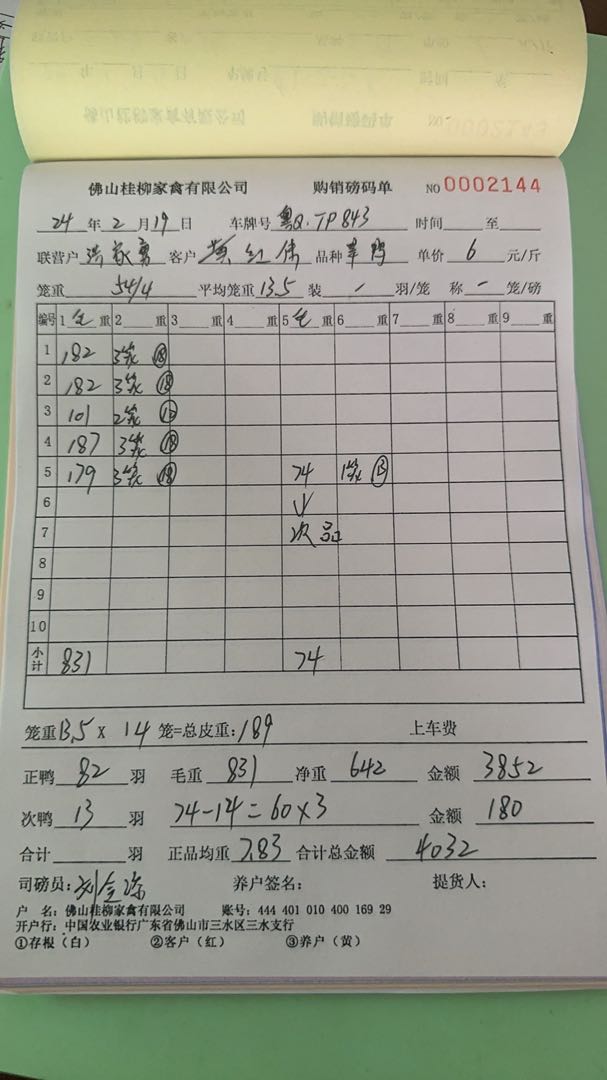 佛山桂柳家禽有限公司 购销磅码单 NO 0002144
24 年 2 月 19 日 车牌号 粤Q·TP843 时间 至
联营户 客户 黄红伟 品种 草鸭 单价 6 元/斤
笼重 54/4 平均笼重 13.5 装 / 羽/笼 称 - 笼/磅
编号 1 毛 重 2 重 3 重 4 重 5 毛 重 6 重 7 重 8 重 9 重
1 182 3笼 ⑱
2 182 3笼 ⑱
3 101 2笼
4 187 3笼 ⑱
5 179 3笼 ⑱ 74 1笼 ⑬
6 ↓
7 次品
8
9
10
小计 831 74
笼重 13.5 x 14 笼=总皮重: 189 上车费
正鸭 82 羽 毛重 831 净重 642 金额 3852
次鸭 13 羽 74-14=60×3 金额 180
合计 羽 正品均重 7.83 合计总金额 4032
司磅员: 养户签名: 提货人:
户 名: 佛山桂柳家禽有限公司 账号: 444 401 010 400 169 29
开户行: 中国农业银行广东省佛山市三水区三水支行
①存根（白） ②客户（红） ③养户（黄）